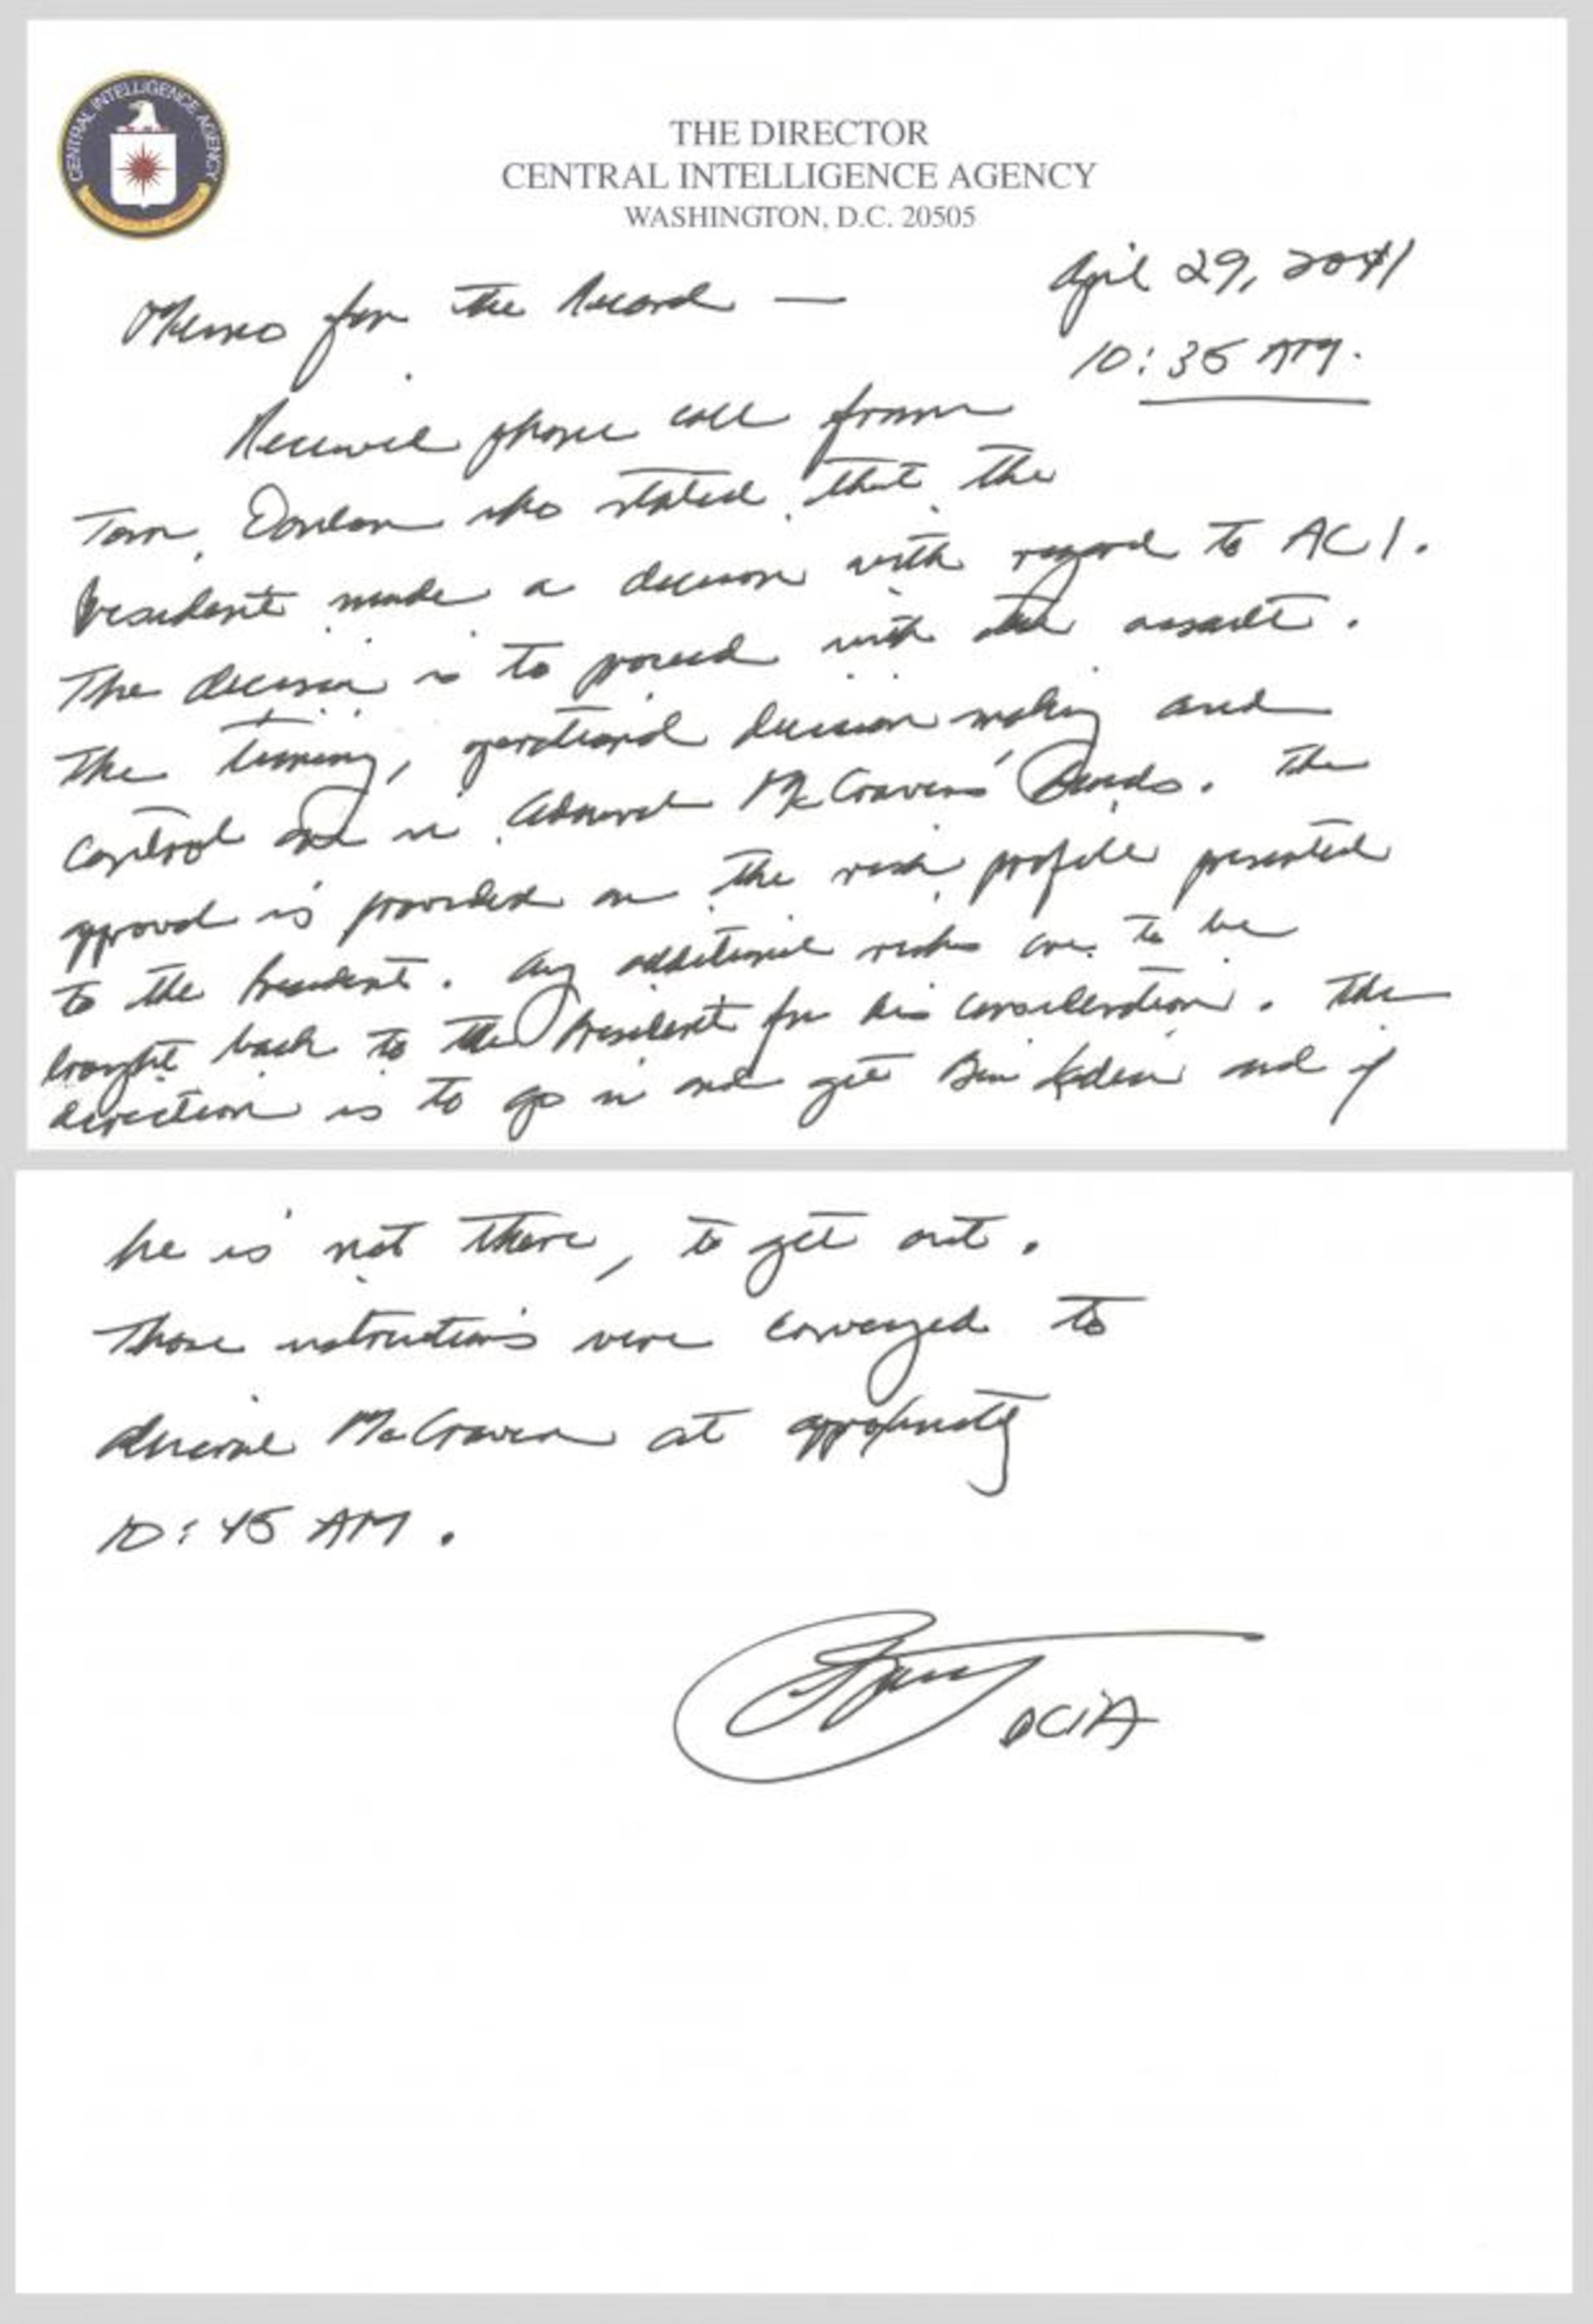 CENTRAL INTELLIGENCE AGENCY
THE DIRECTOR
CENTRAL INTELLIGENCE AGENCY
WASHINGTON, D.C. 20505
April 29, 2011
10:35 AM.
Memo for the Record —
Received phone call from
Tom Donilon who stated that the
President made a decision with regard to AC1.
The decision is to proceed with the assault.
The timing, operational decision making and
control are in Admiral McCraven's hands. The
approval is provided on the risk profile presented
to the President. Any additional risks are to be
brought back to the President for his consideration. The
direction is to go in and get Bin Laden and if
he is not there, to get out.
Those instructions were conveyed to
Admiral McCraven at approximately
10:45 AM.
DCIA